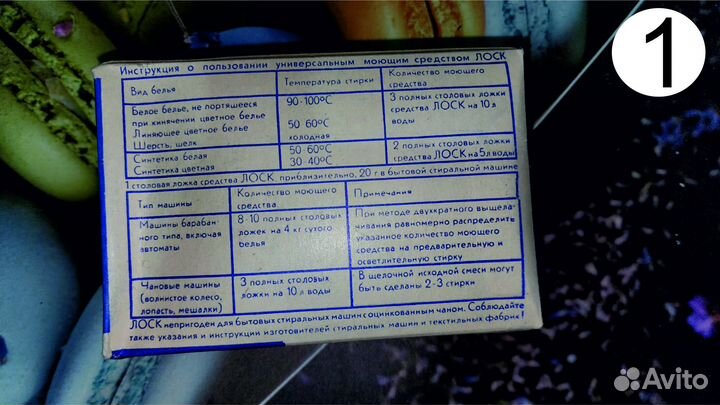 1
Инструкция о пользовании универсальным моющим средством ЛОСК
Вид белья
Температура стирки
Количество моющего
средства
Белое белье, не портящееся
при кинячении цветное белье
Линяющее цветное белье
Шерсть, шелк
90-100°С
50-60°С
холодная
3 полных столовых ложки
средства ЛОСК на 10 л
воды
Синтетика белая
Синтетика цветная
50-60°С
30-40°С
2 полных столовых ложки
средства ЛОСК на 5л воды
1 столовая ложка средства ЛОСК, приблизительно, 20 г в бытовой стиральной машине
Тип машины
Количество моющего
средства
Примечания
Машины барабан-
ного типа, включая
автоматы
8-10 полных столовых
ложек на 4 кг сутого
белья
При методе двухкратного выщела-
чивания равномерно распределить
указанное количество моющего
средства на предварительную и
осветлительную стирку
Чановые машины
(волнистое колесо,
лопасть, мешалки)
3 полных столовых
ложки на 10 л воды
В щелочной исходной смеси могут
быть сделаны 2-3 стирки
ЛОСК непригоден для бытовых стиральных машин с оцинкованным чаном. Соблюдайте
также указания и инструкции изготовителей стиральных машин и текстильных фабрик!
Avito